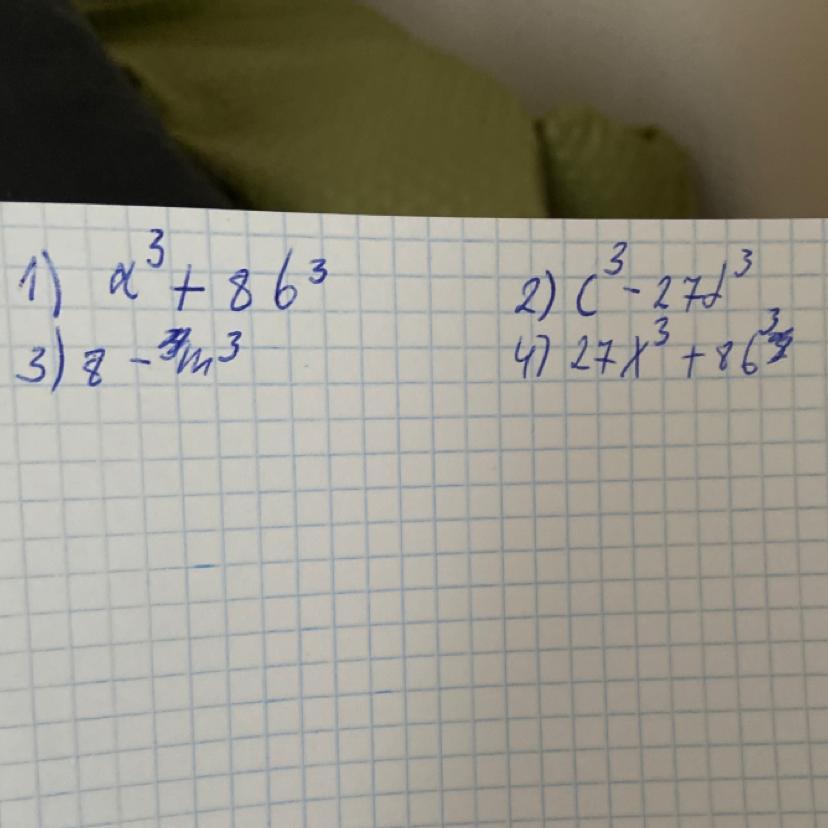 1) a³ + 8b³ 2) c³ - 27d³
3) 8 - m³ 4) 27x³ + 8b³